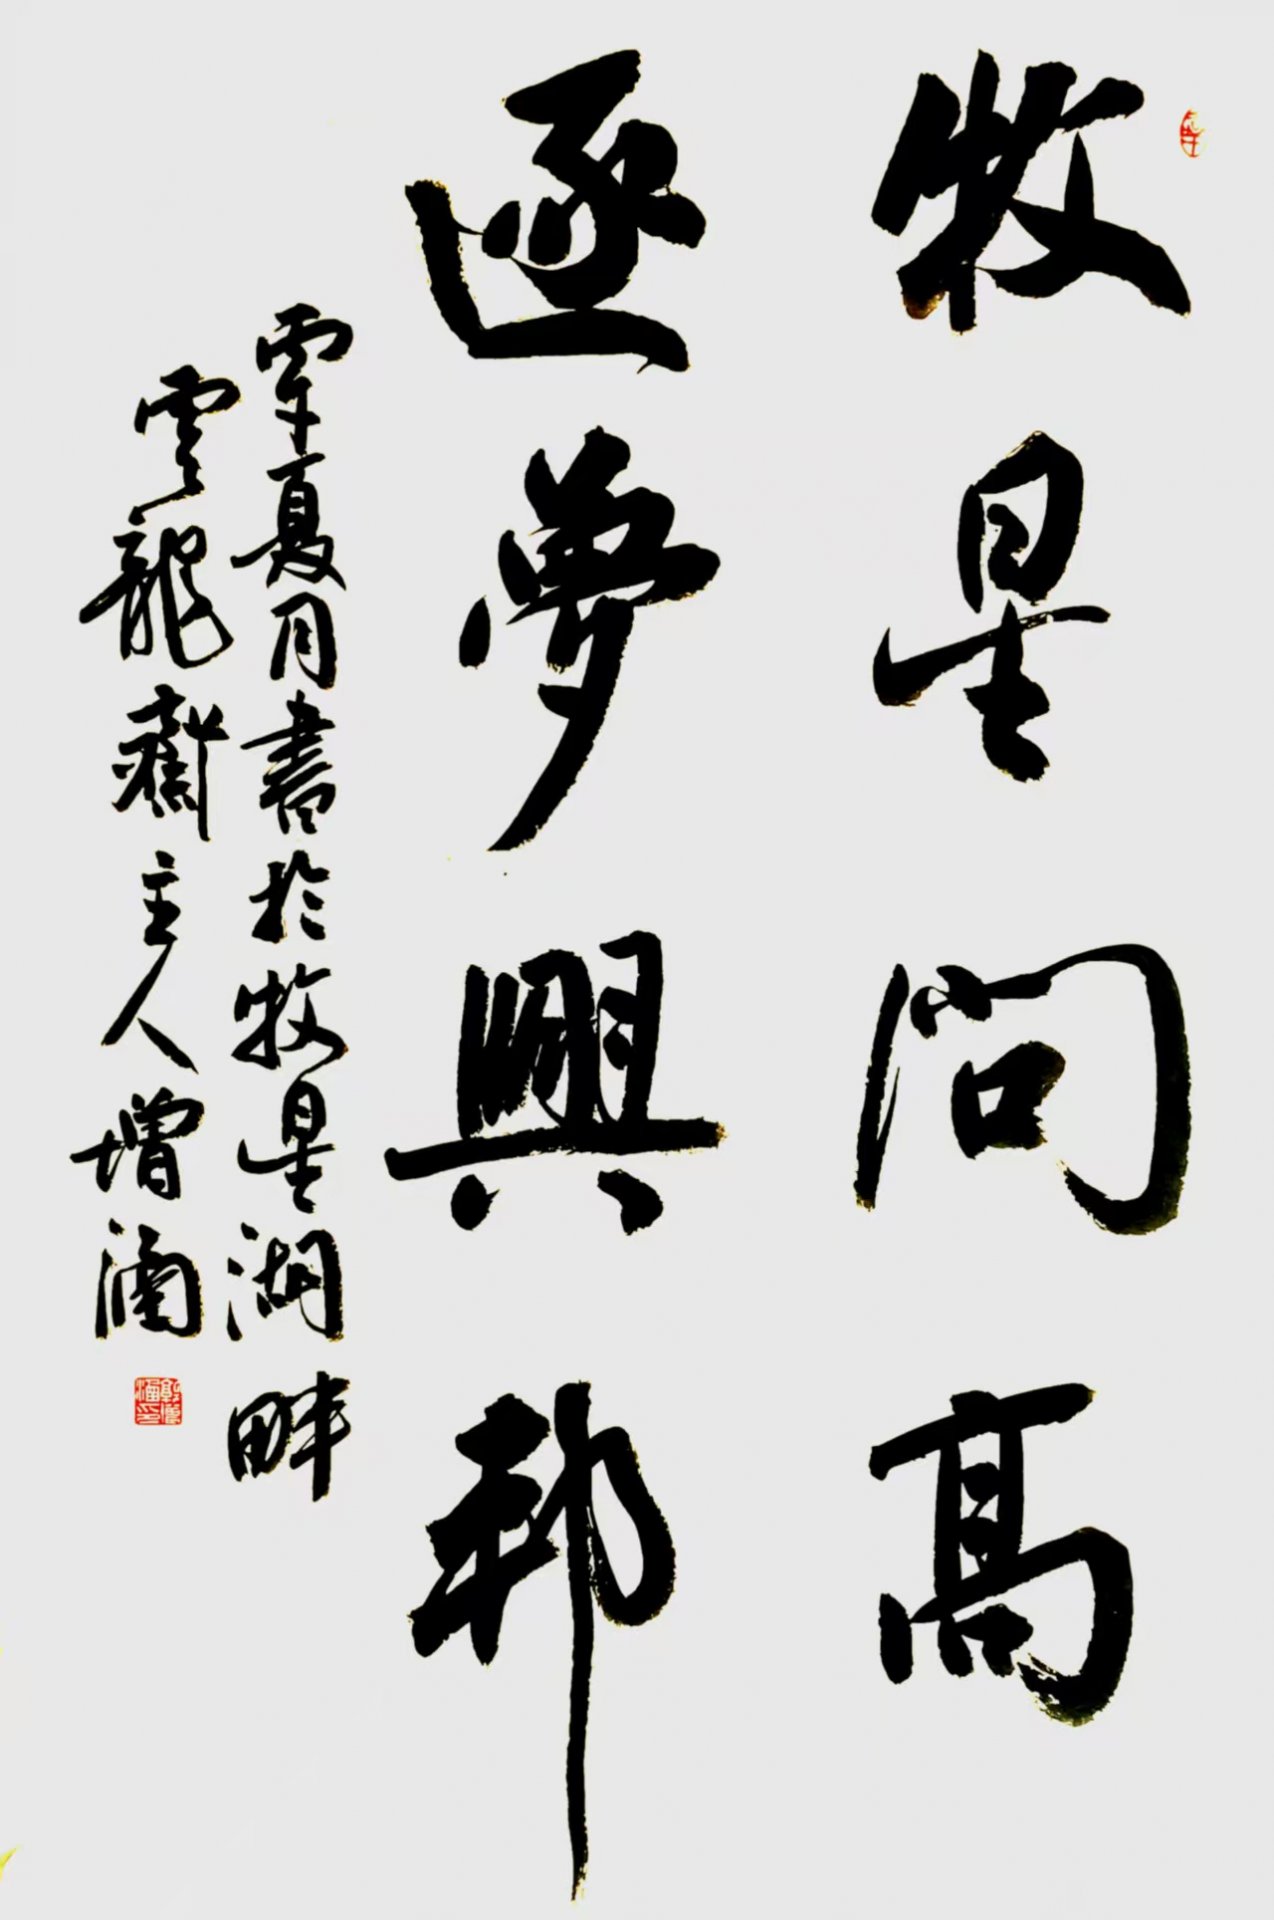 牧星問高
逐夢興邦
夏月書於牧星湖畔
雲龍齋主人增涌